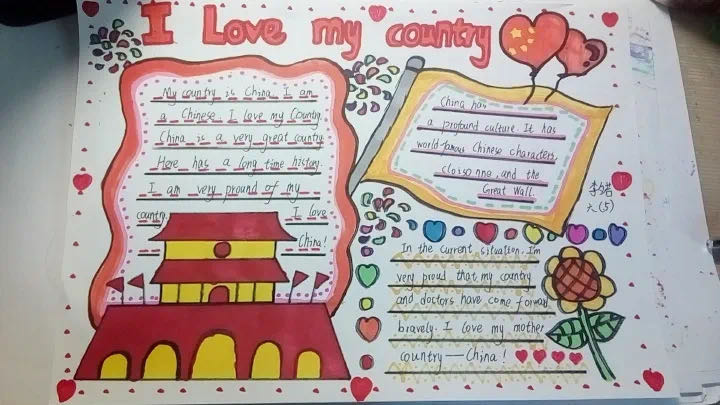 I Love my country
My country is China. I am
a Chinese. I love my Country.
China is a very great country.
Here has a long time history.
I am very pround of my
country. I love
China!
China has
a profound culture. It has
world-famous Chinese characters,
cloisonne, and the
Great Wall.
六(5)
In the current situation, I'm
very proud that my country
and doctors have come forward
bravely. I love my mother
country—China!